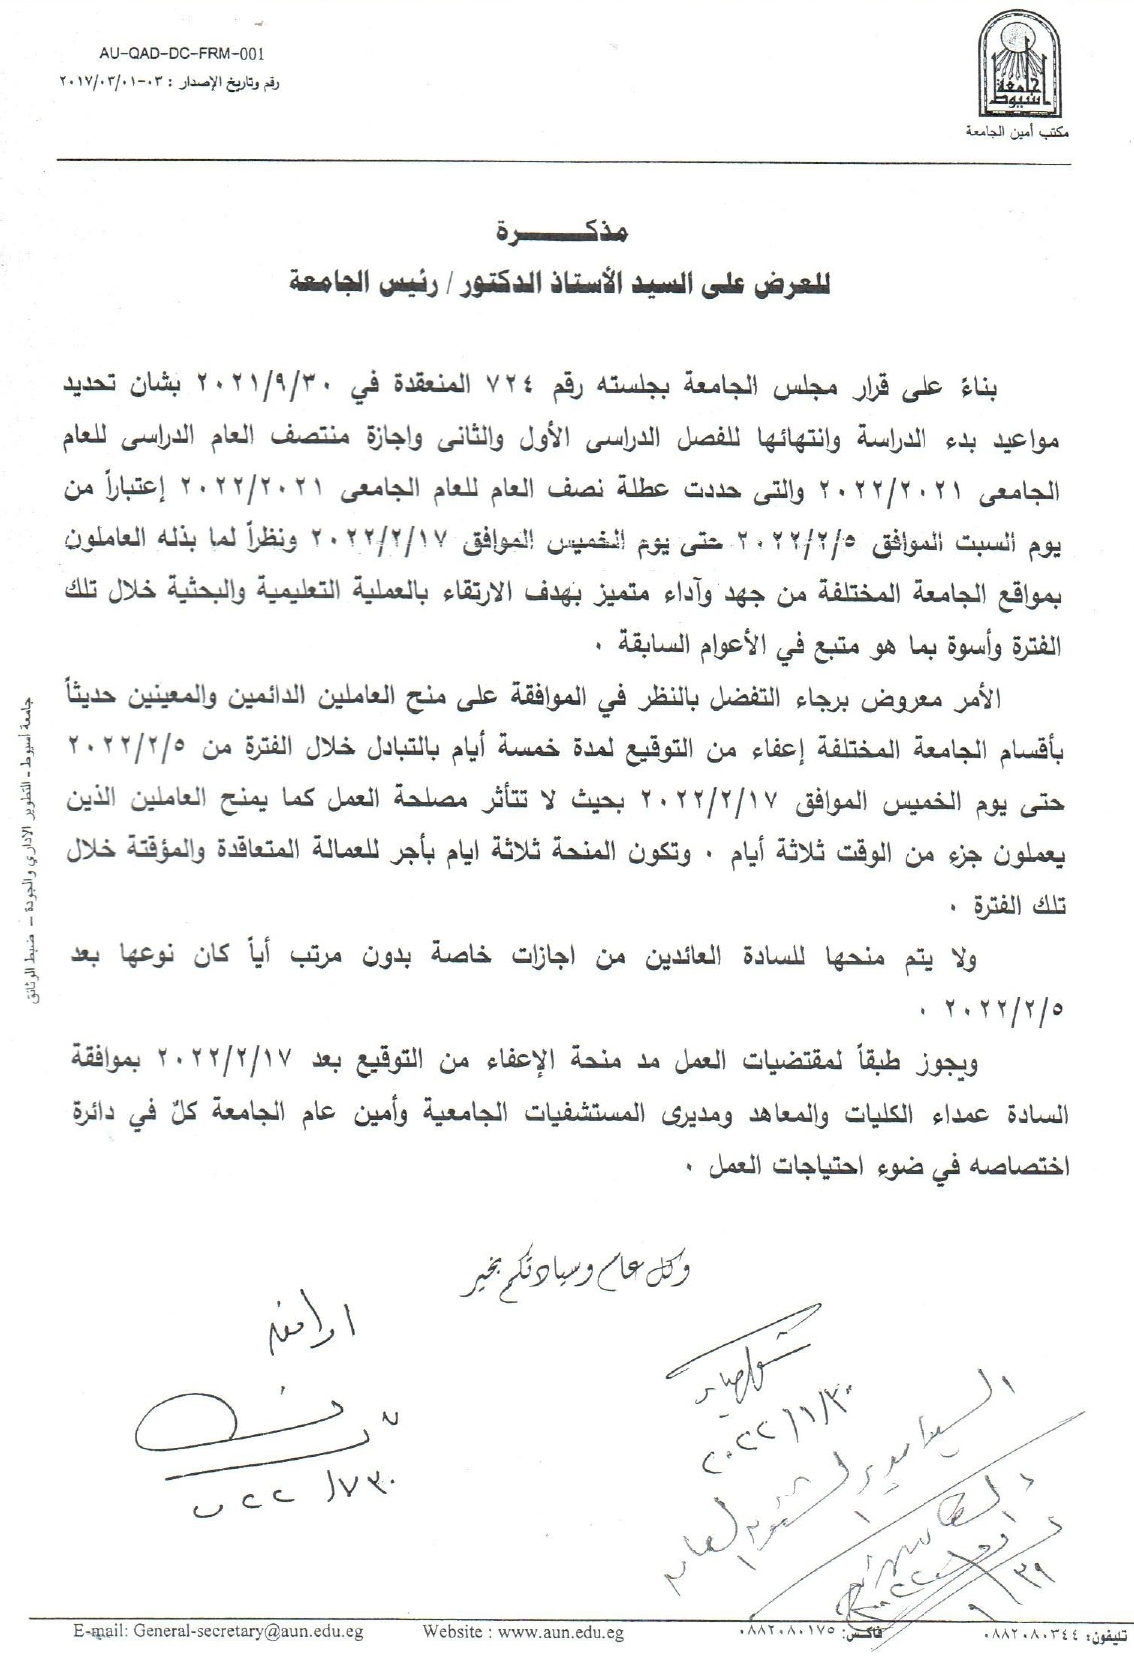 AU-QAD-DC-FRM-001
رقم وتاريخ الإصدار : ٠٣-٢٠١٧/٠٣/٠١
جامعة أسيوط
مكتب أمين الجامعة
مذكـــــرة
للعرض على السيد الأستاذ الدكتور / رئيس الجامعة
بناءً على قرار مجلس الجامعة بجلسته رقم ٧٢٤ المنعقدة في ٢٠٢١/٩/٣٠ بشان تحديد
مواعيد بدء الدراسة وانتهائها للفصل الدراسى الأول والثانى واجازة منتصف العام الدراسى للعام
الجامعى ٢٠٢٢/٢٠٢١ والتى حددت عطلة نصف العام للعام الجامعى ٢٠٢٢/٢٠٢١ إعتباراً من
يوم السبت الموافق ٢٠٢٢/٢/٥ حتى يوم الخميس الموافق ٢٠٢٢/٢/١٧ ونظراً لما بذله العاملون
بمواقع الجامعة المختلفة من جهد وآداء متميز بهدف الارتقاء بالعملية التعليمية والبحثية خلال تلك
الفترة وأسوة بما هو متبع في الأعوام السابقة ٠
الأمر معروض برجاء التفضل بالنظر في الموافقة على منح العاملين الدائمين والمعينين حديثاً
بأقسام الجامعة المختلفة إعفاء من التوقيع لمدة خمسة أيام بالتبادل خلال الفترة من ٢٠٢٢/٢/٥
حتى يوم الخميس الموافق ٢٠٢٢/٢/١٧ بحيث لا تتأثر مصلحة العمل كما يمنح العاملين الذين
يعملون جزء من الوقت ثلاثة أيام ٠ وتكون المنحة ثلاثة ايام بأجر للعمالة المتعاقدة والمؤقتة خلال
تلك الفترة ٠
ولا يتم منحها للسادة العائدين من اجازات خاصة بدون مرتب أياً كان نوعها بعد
٢٠٢٢/٢/٥ ٠
ويجوز طبقاً لمقتضيات العمل مد منحة الإعفاء من التوقيع بعد ٢٠٢٢/٢/١٧ بموافقة
السادة عمداء الكليات والمعاهد ومديرى المستشفيات الجامعية وأمين عام الجامعة كلٌ في دائرة
اختصاصه في ضوء احتياجات العمل ٠
وكل عام وسيادتكم بخير
اوافق
٢٠٢٢/١/٣٠
جامعة أسيوط - التطوير الادارى والجودة - ضبط الوثائق
E-mail: General-secretary@aun.edu.eg Website : www.aun.edu.eg فاكس: ٠٨٨٢٠٨٠١٧٥ تليفون: ٠٨٨٢٠٨٠٣٤٤